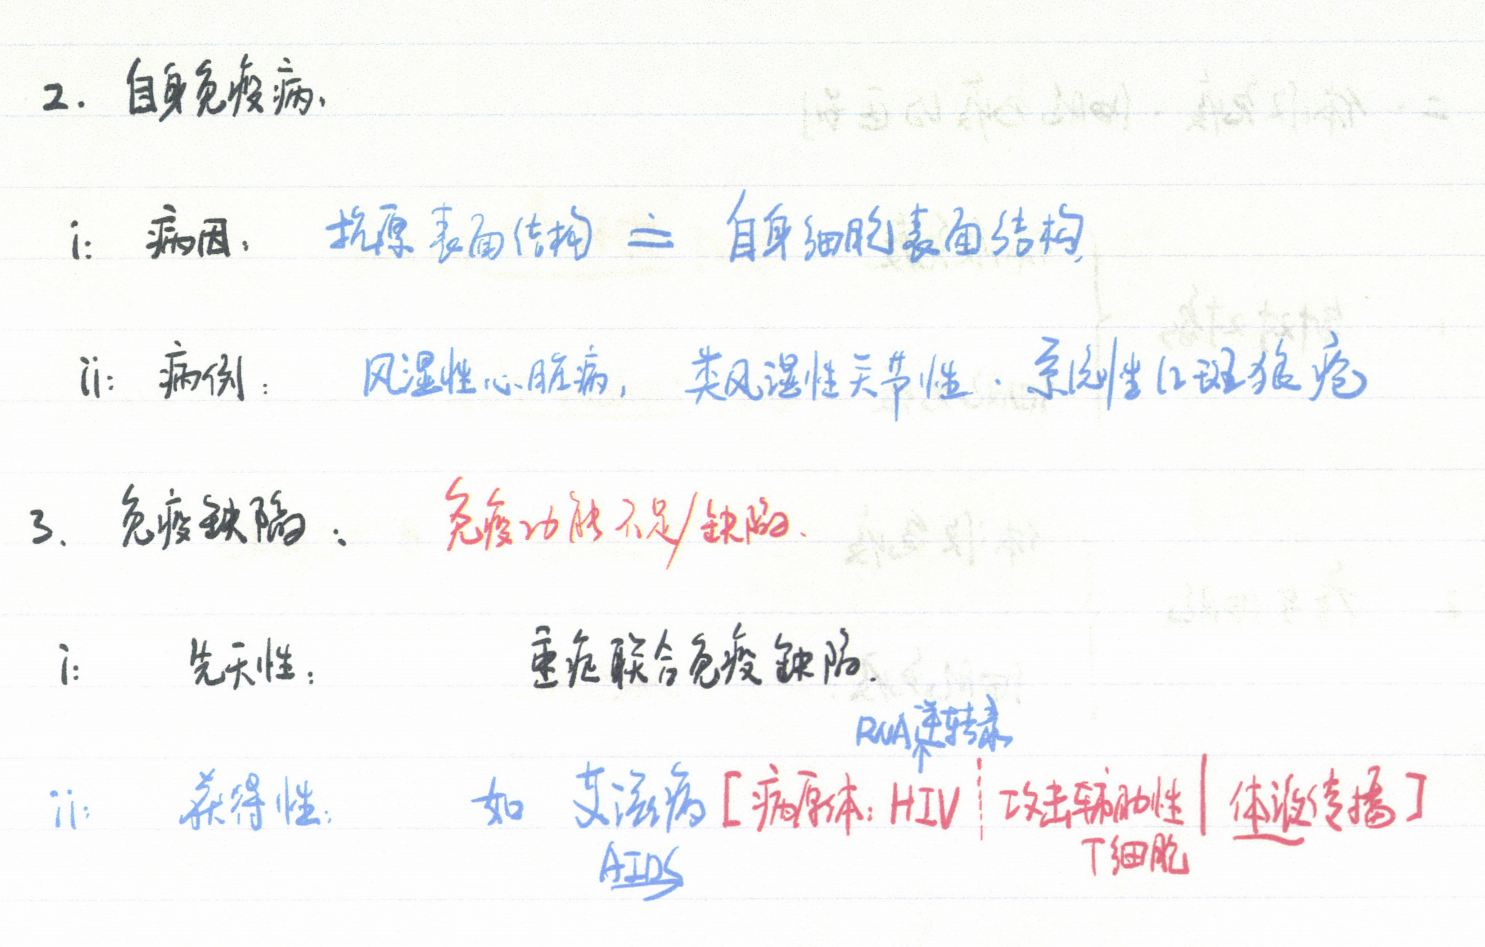 2. 自身免疫病、
i: 病因: 抗原表面结构 ≐ 自身细胞表面结构
ii: 病例: 风湿性心脏病, 类风湿性关节性 · 系统性红斑狼疮
3、免疫缺陷: 免疫功能不足/缺陷.
i: 先天性: 重症联合免疫缺陷.
RNA逆转录
ii: 获得性: 如 艾滋病 [病原体: HIV ¦ 攻击辅助性 | 体液传播]
AIDS T细胞